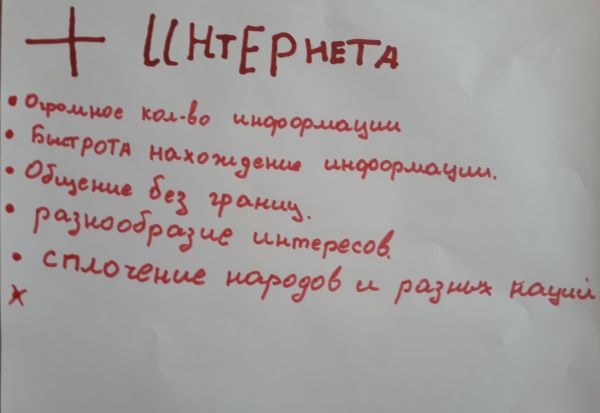 + ИНТЕРНЕТА
• Огромное кол-во информации
• Быстрота нахождение информации.
• Общение без границ.
• разнообразие интересов.
• сплочение народов и разных наций
х